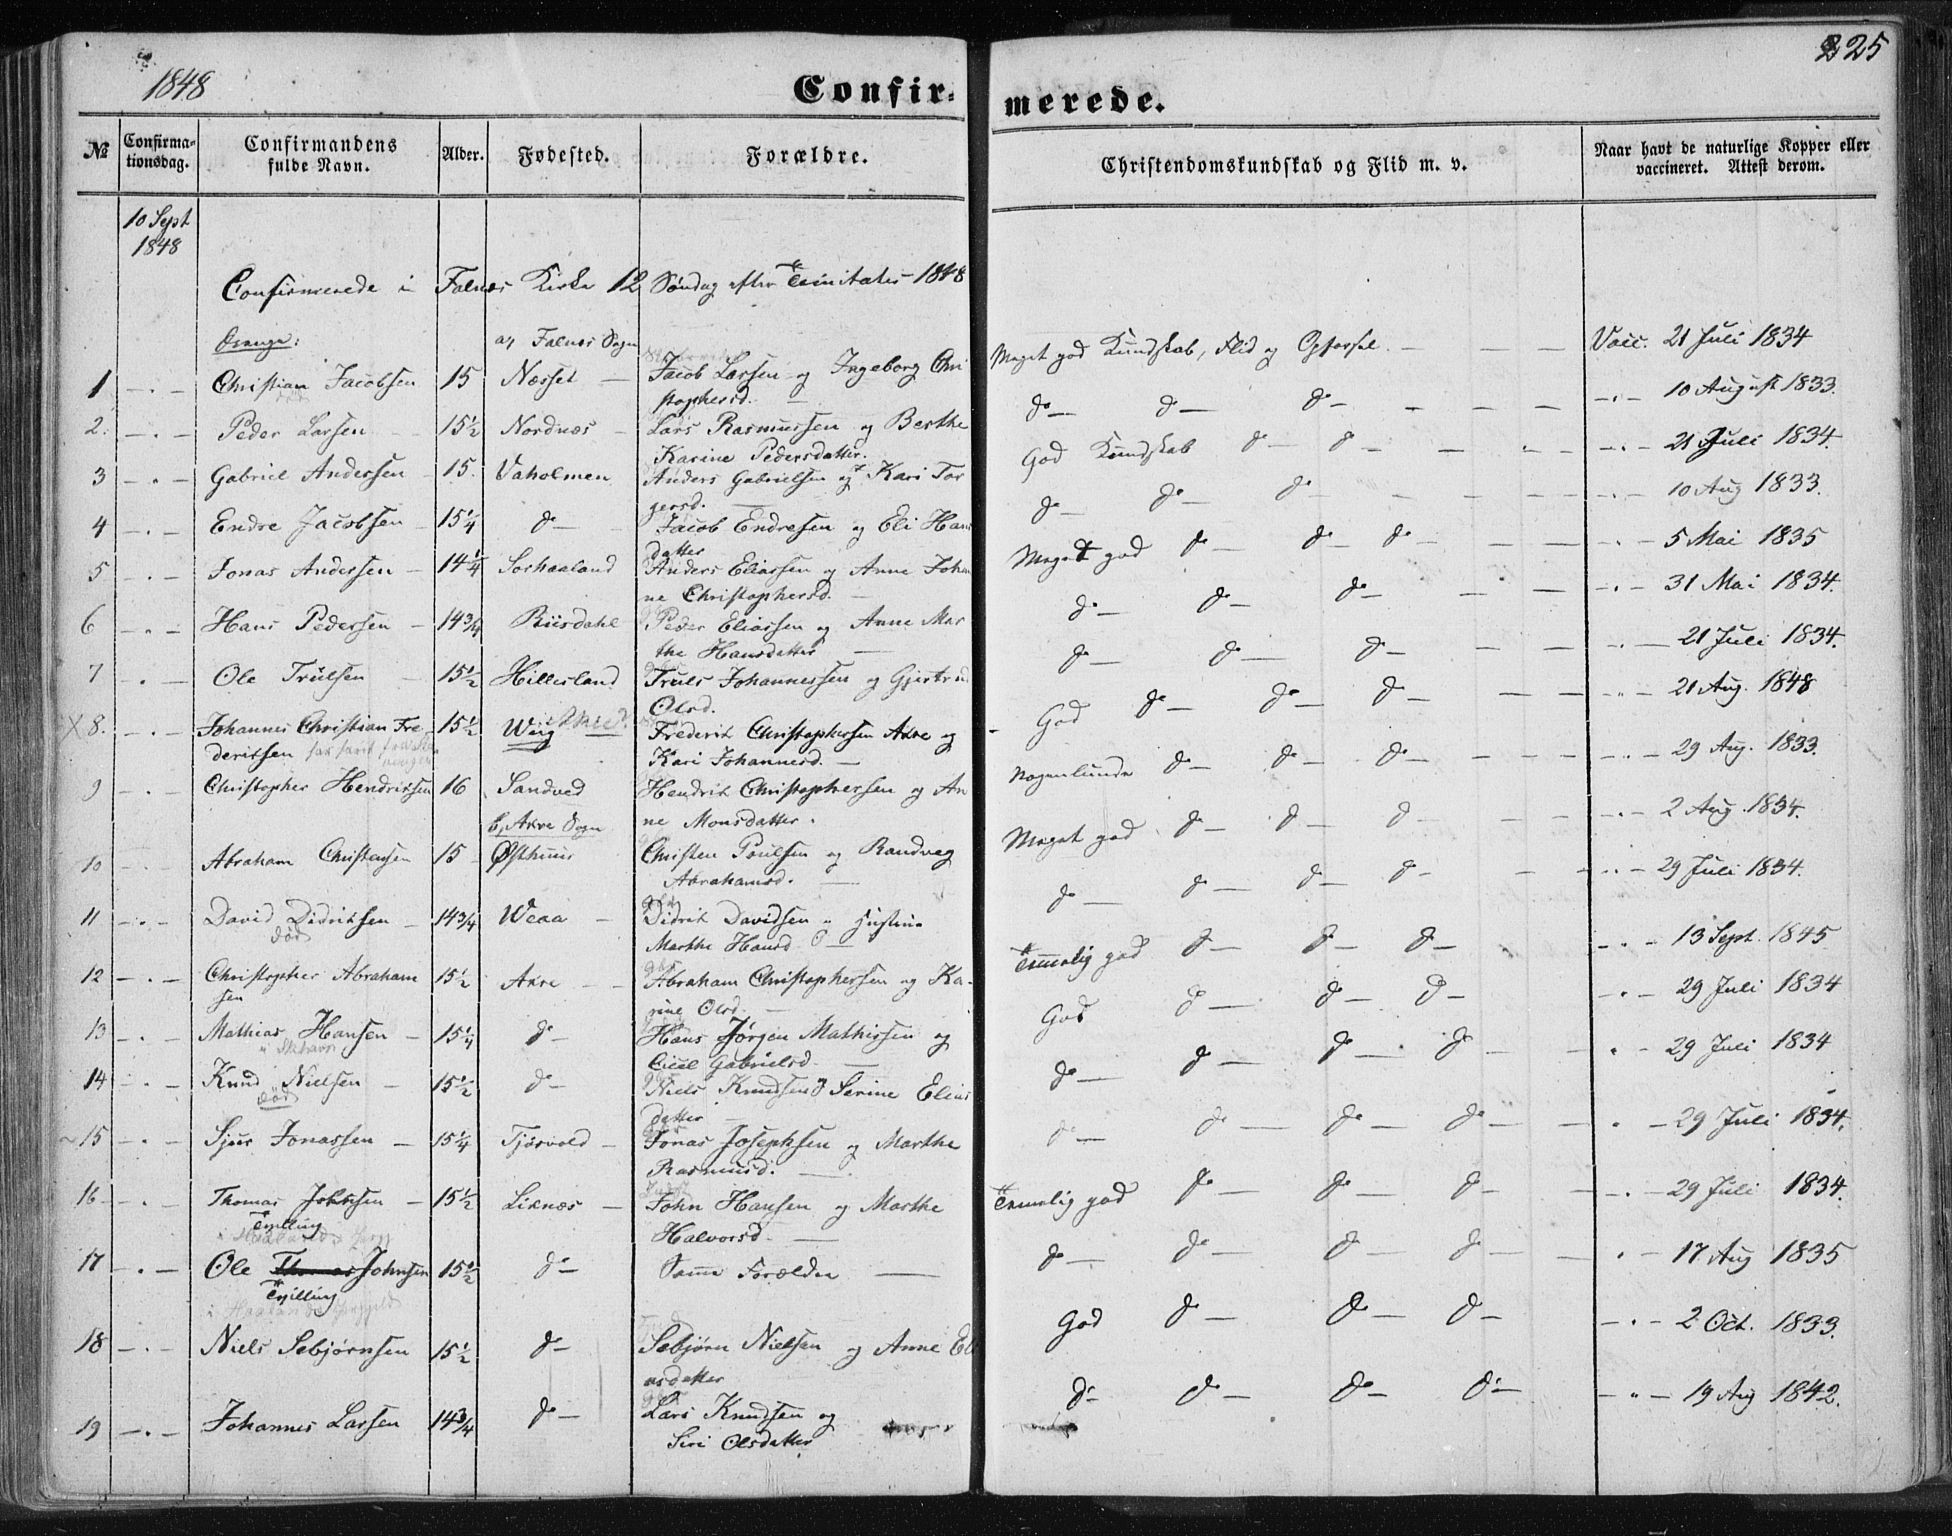 1848
Confir-
merede.
225
№ Confirma-tionsdag. Confirmandens fulde Navn. Alder. Fødested. Forældre. Christendomskundskab og Flid m. v. Naar havt de naturlige Kopper eller vaccineret. Attest derom.
10 Sept
1848
Confirmerede i Falnæs Kirke 12 Søndag efter Trinitatis 1848
Drenge: af Falnæs Sogn
1 Christian Jacobsen 15 Næsset Jacob Larsen og Ingeborg Chri Meget god Kundskab, Flid og Opførsel Vacc. 21 Juli 1834
død stophersd.
2. Peder Larsen 15½ Nordnæs Lars Rasmussen og Berthe do do do 10 August 1833.
Karine Pedersdatter.
3 Gabriel Anderssen 15. Vaholmen Anders Gabrielsen og Kari Tor God Kundskab do do 21 Juli 1834.
gersd.
4 Endre Jacobsen 15¼ do Jacob Endresen og Eli Hans do do do 10 Aug 1833.
datter
5 Jonas Anderssen 14¼ Sørhaaland Anders Eliassen og Anne Johan Meget god do do do 5 Mai 1835
ne Christophersd.
6 Hans Pedersen 14¾ Riisdahl Peder Eliassen og Anne Mar do do do 31 Mai 1834.
the Hansdatter
7 Ole Trulsen 15½ Hillesland Truls Johannessen og Gjertrud do do do 21 Juli 1834.
Olsd.
X 8. Johannes Christian Fre 15½ Wiig Frederik Christophersen Akre og God do do do 21 Aug. 1848
deriksen Kari Johannesd.
9 Christopher Hendriksen 16 Sandved Hendrik Christophersen og An Nogenlunde do do do 29 Aug. 1833.
ne Monsdatter.
Af Akre Sogn
10 Abraham Christensen 15 Østhuus Christen Poulsen og Randveg Meget god do do do 2 Aug. 1834.
Abrahamsd.
11 David Didriksen 14¾ Weaa Didrik Davidsen do do do do 29 Juli 1834.
død Marthe Hansd
12 Christopher Abraham 15½ Akre Abraham Christophersen og Ka- Temmelig god do do do 13 Sept. 1845
sen rine Olsd.
13 Mathias Hansen 15¼ do Hans Jørgen Mathissen og God do do do 29 Juli 1834
Gabrielsd.
14 Knud Nielsen 15½ do Niels Knudsen og Serine Elias do do do do 29 Juli 1834
død datter
15 Sjur Jonassen 15¼ Tjøsvold Jonas Josephsen og Marthe do do do do 29 Juli 1834.
Rasmusd.
16 Thomas Johnsen 15½ Liknæs John Hansen og Marthe Temmelig god do do do 29 Juli 1834.
Tvilling Halvorsd.
17 Ole Thomas Johnsen 15½ do Samme Forældre do do do do 17 Aug 1835
Tvilling
18 Niels Sebjørnsen 15½ do Sebjørn Nielsen og Anne Eli God do do do 2 Oct. 1833.
asdatter
19 Johannes Larsen 14¾ do Lars Knudsen og do do do do 19 Aug 1842.
Siri Olsdatter